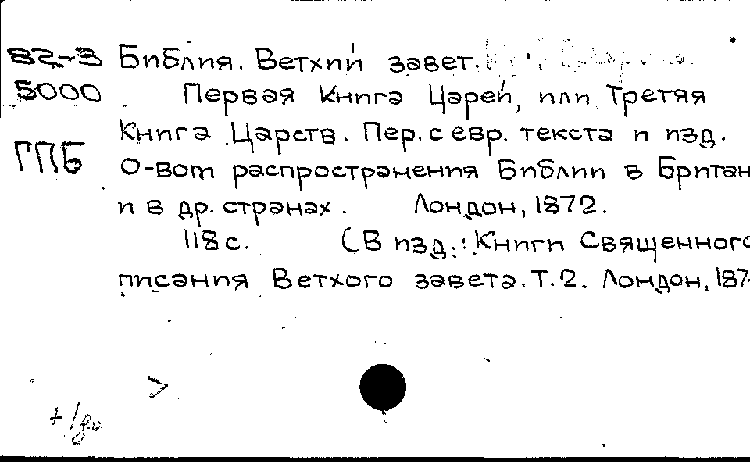 82-3 Библия. Ветхий завет.
5000 Первая Книга Царей, или Третяя
Книга Царств. Пер. с евр. текста и изд.
ГПБ О-вом распространения Библии в Британ
и в др. странах. Лондон, 1872.
118 с. (В изд.: Книги Священного
писания Ветхого завета. Т.2. Лондон, 187